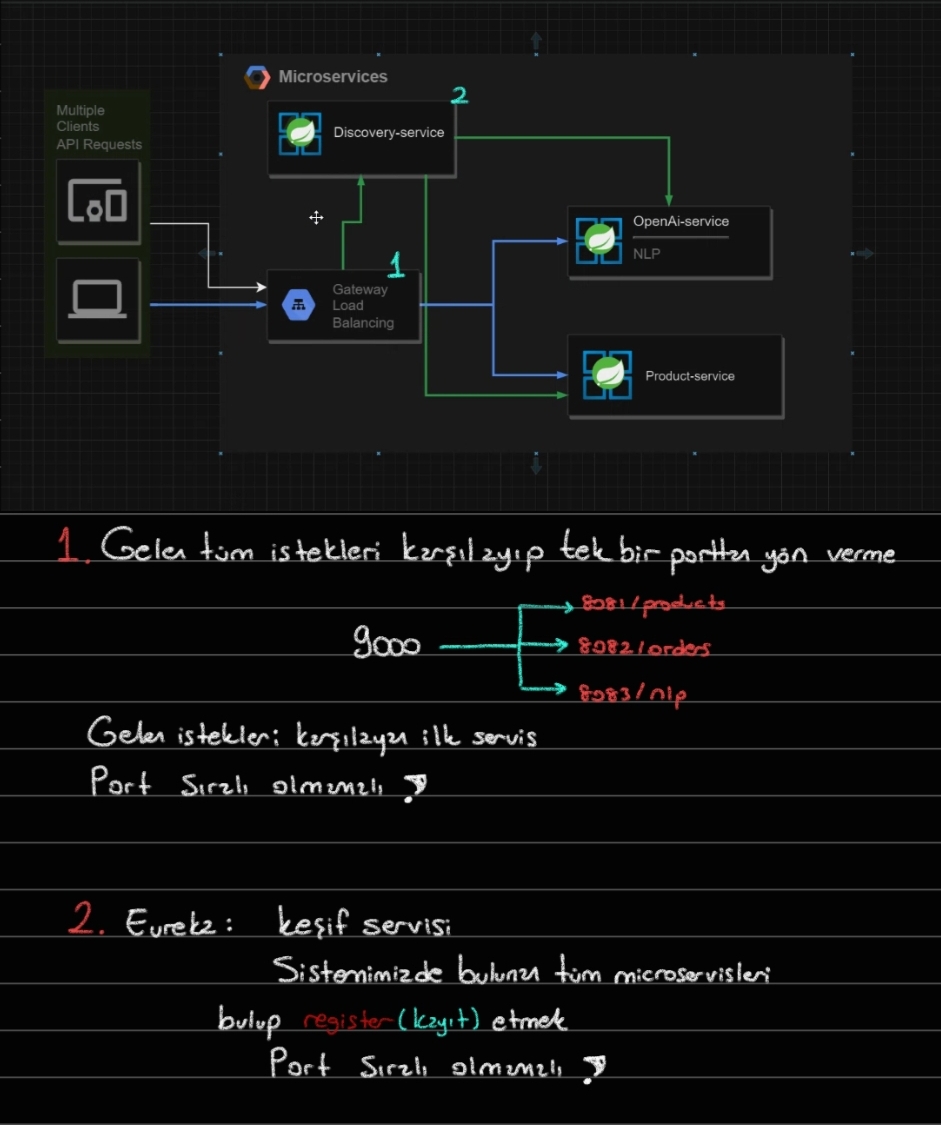 Microservices
Multiple
Clients
API Requests
2
Discovery-service
OpenAi-service
NLP
1
Gateway
Load
Balancing
Product-service
1. Gelen tüm istekleri karşılayıp tek bir porttan yön verme
8081/products
9000
8082/orders
8083/nlp
Gelen istekleri karşılayan ilk servis
Port Sıralı olmamalı ?
2. Eureka: keşif servisi
Sistemimizde bulunan tüm microservisleri
bulup register (kayıt) etmek
Port Sıralı olmamalı ?